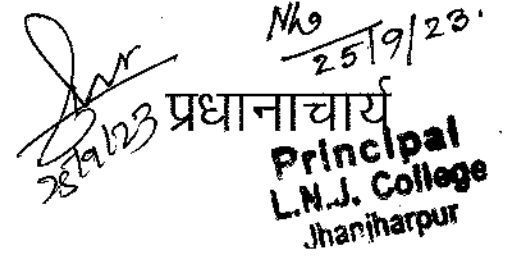 25/9/23.
25/9/23
प्रधानाचार्य
Principal
L.N.J. College
Jhanjharpur